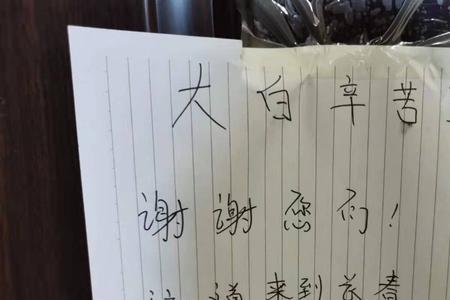 大白辛苦
谢谢您们!
来到长春